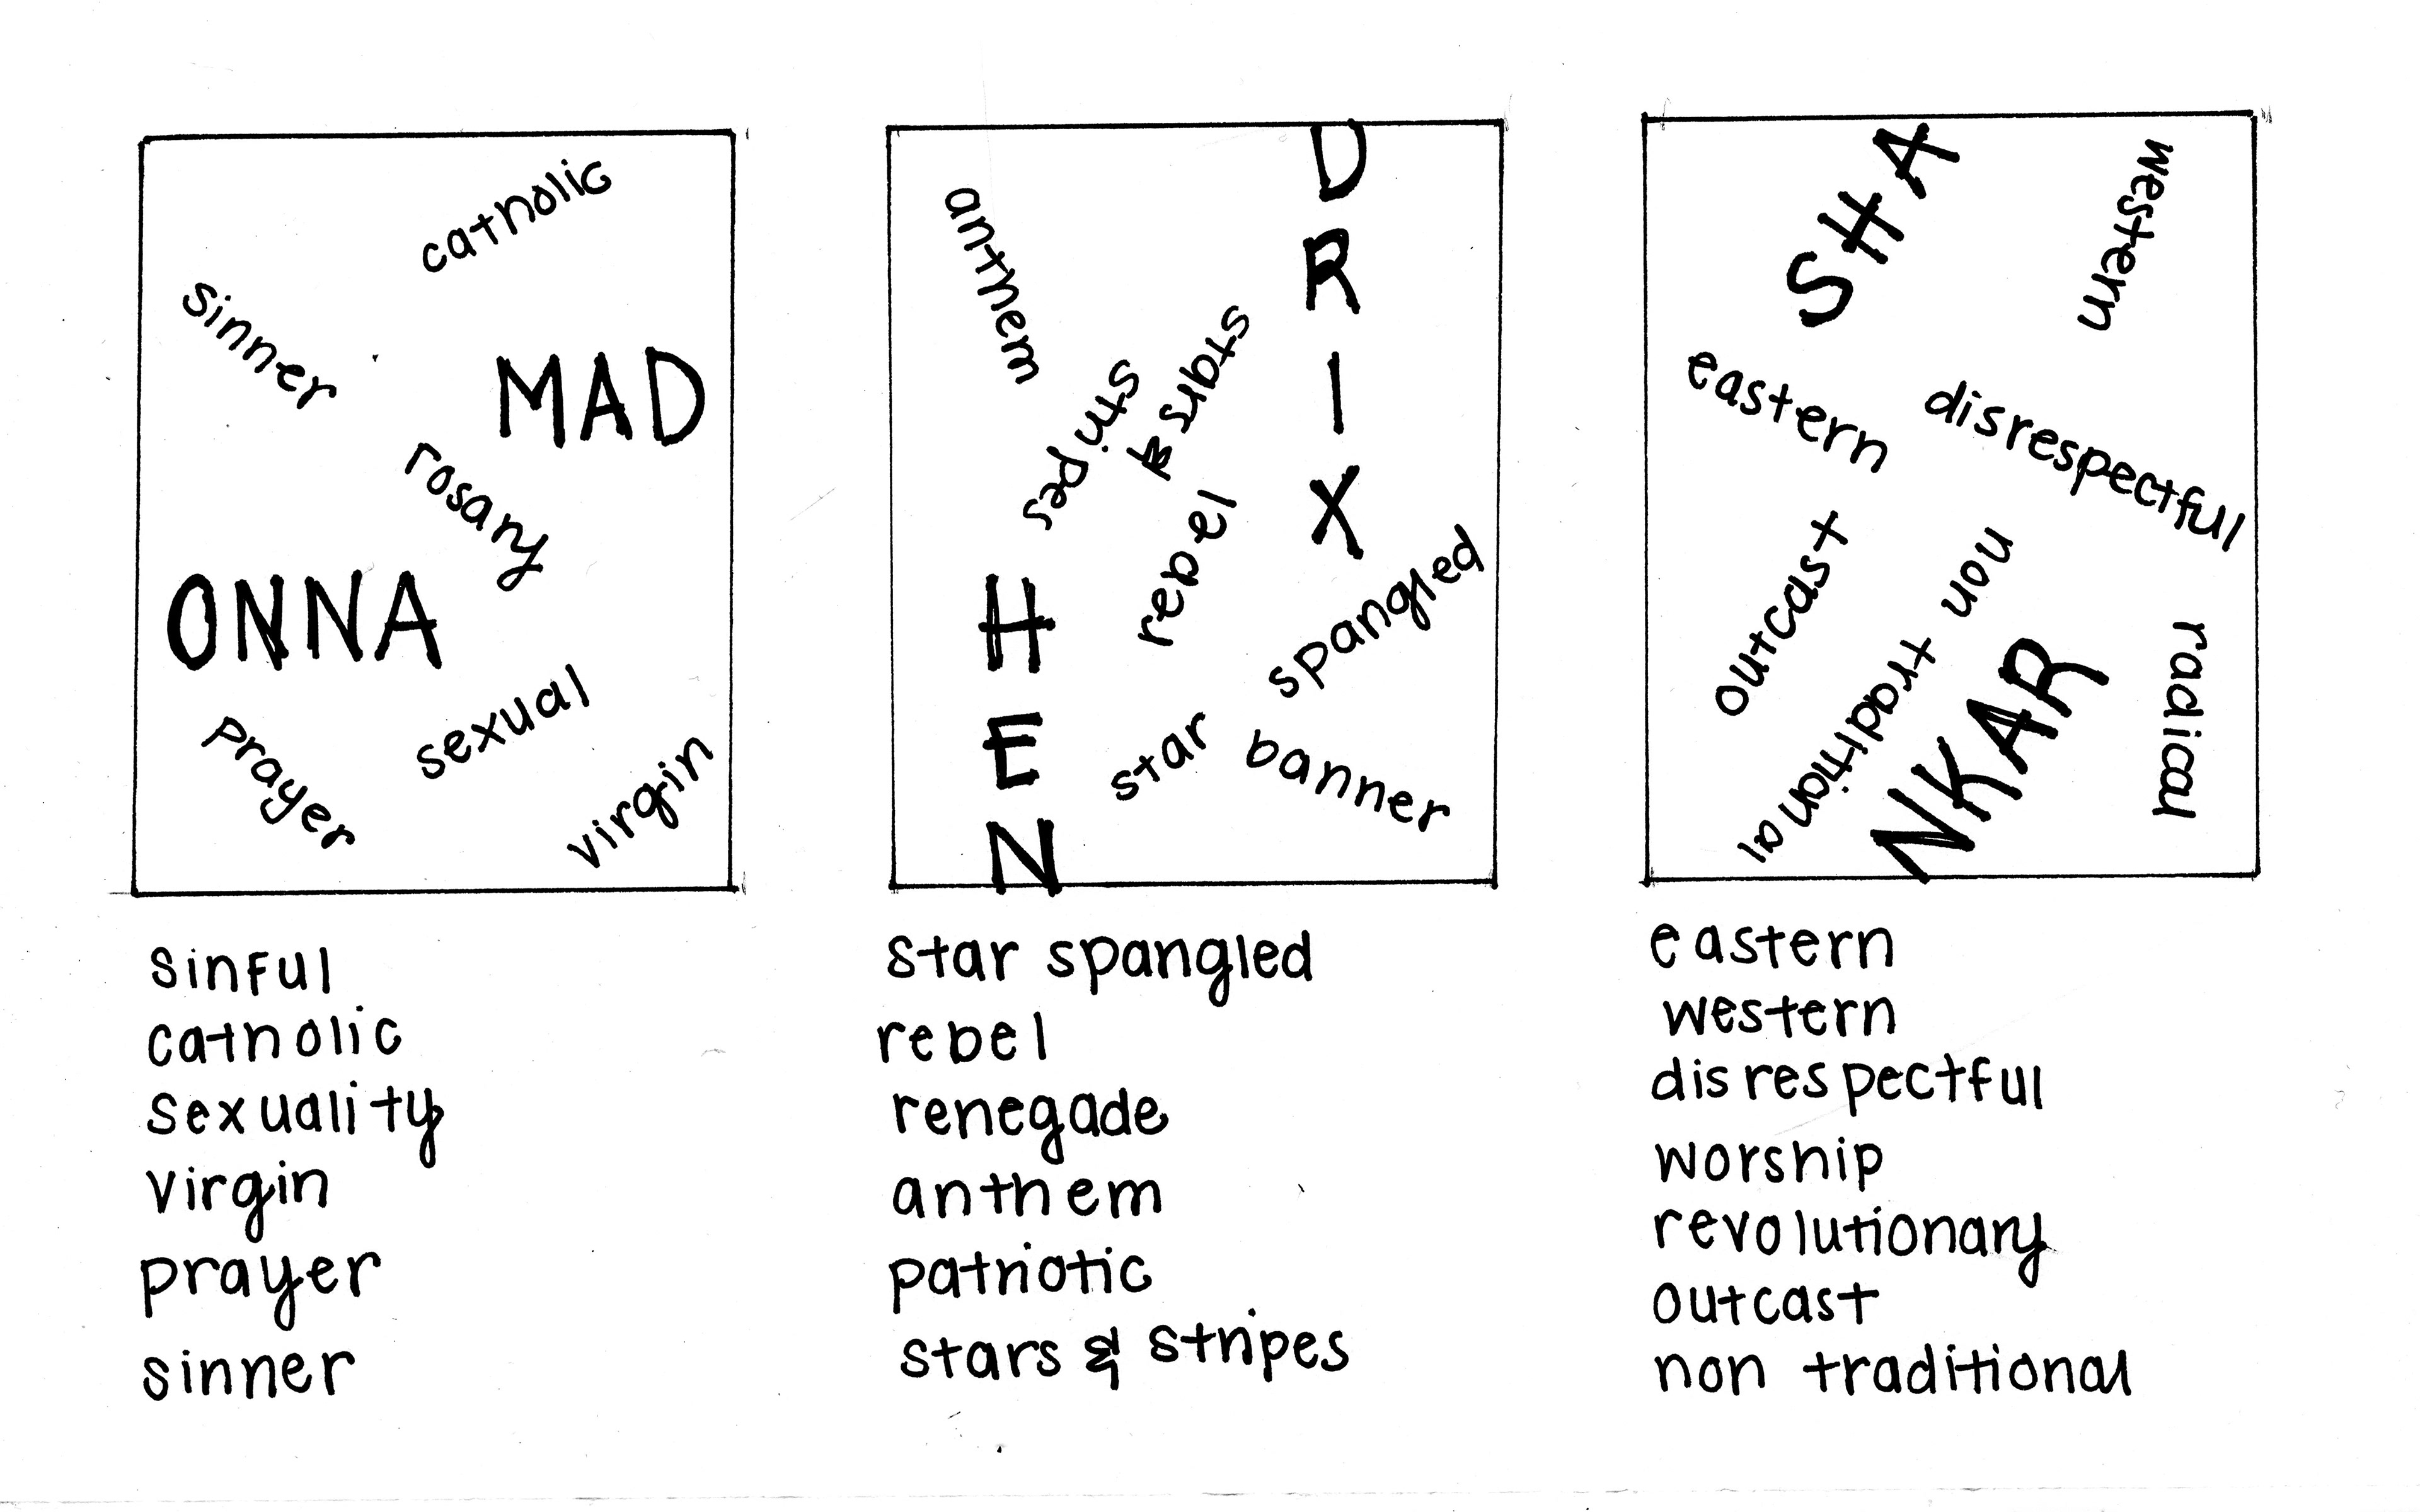 catholic
sinner
MAD
rosary
ONNA
sexual
prayer
virgin
D
R
I
X
anthem
stars &
stripes
rebel
H
E
N
spangled
star
banner
SHA
western
eastern
disrespectful
outcast
non
traditional
NKAR
radical
sinful
catholic
sexuality
virgin
prayer
sinner
star spangled
rebel
renegade
anthem
patriotic
stars & stripes
eastern
western
disrespectful
worship
revolutionary
outcast
non traditional